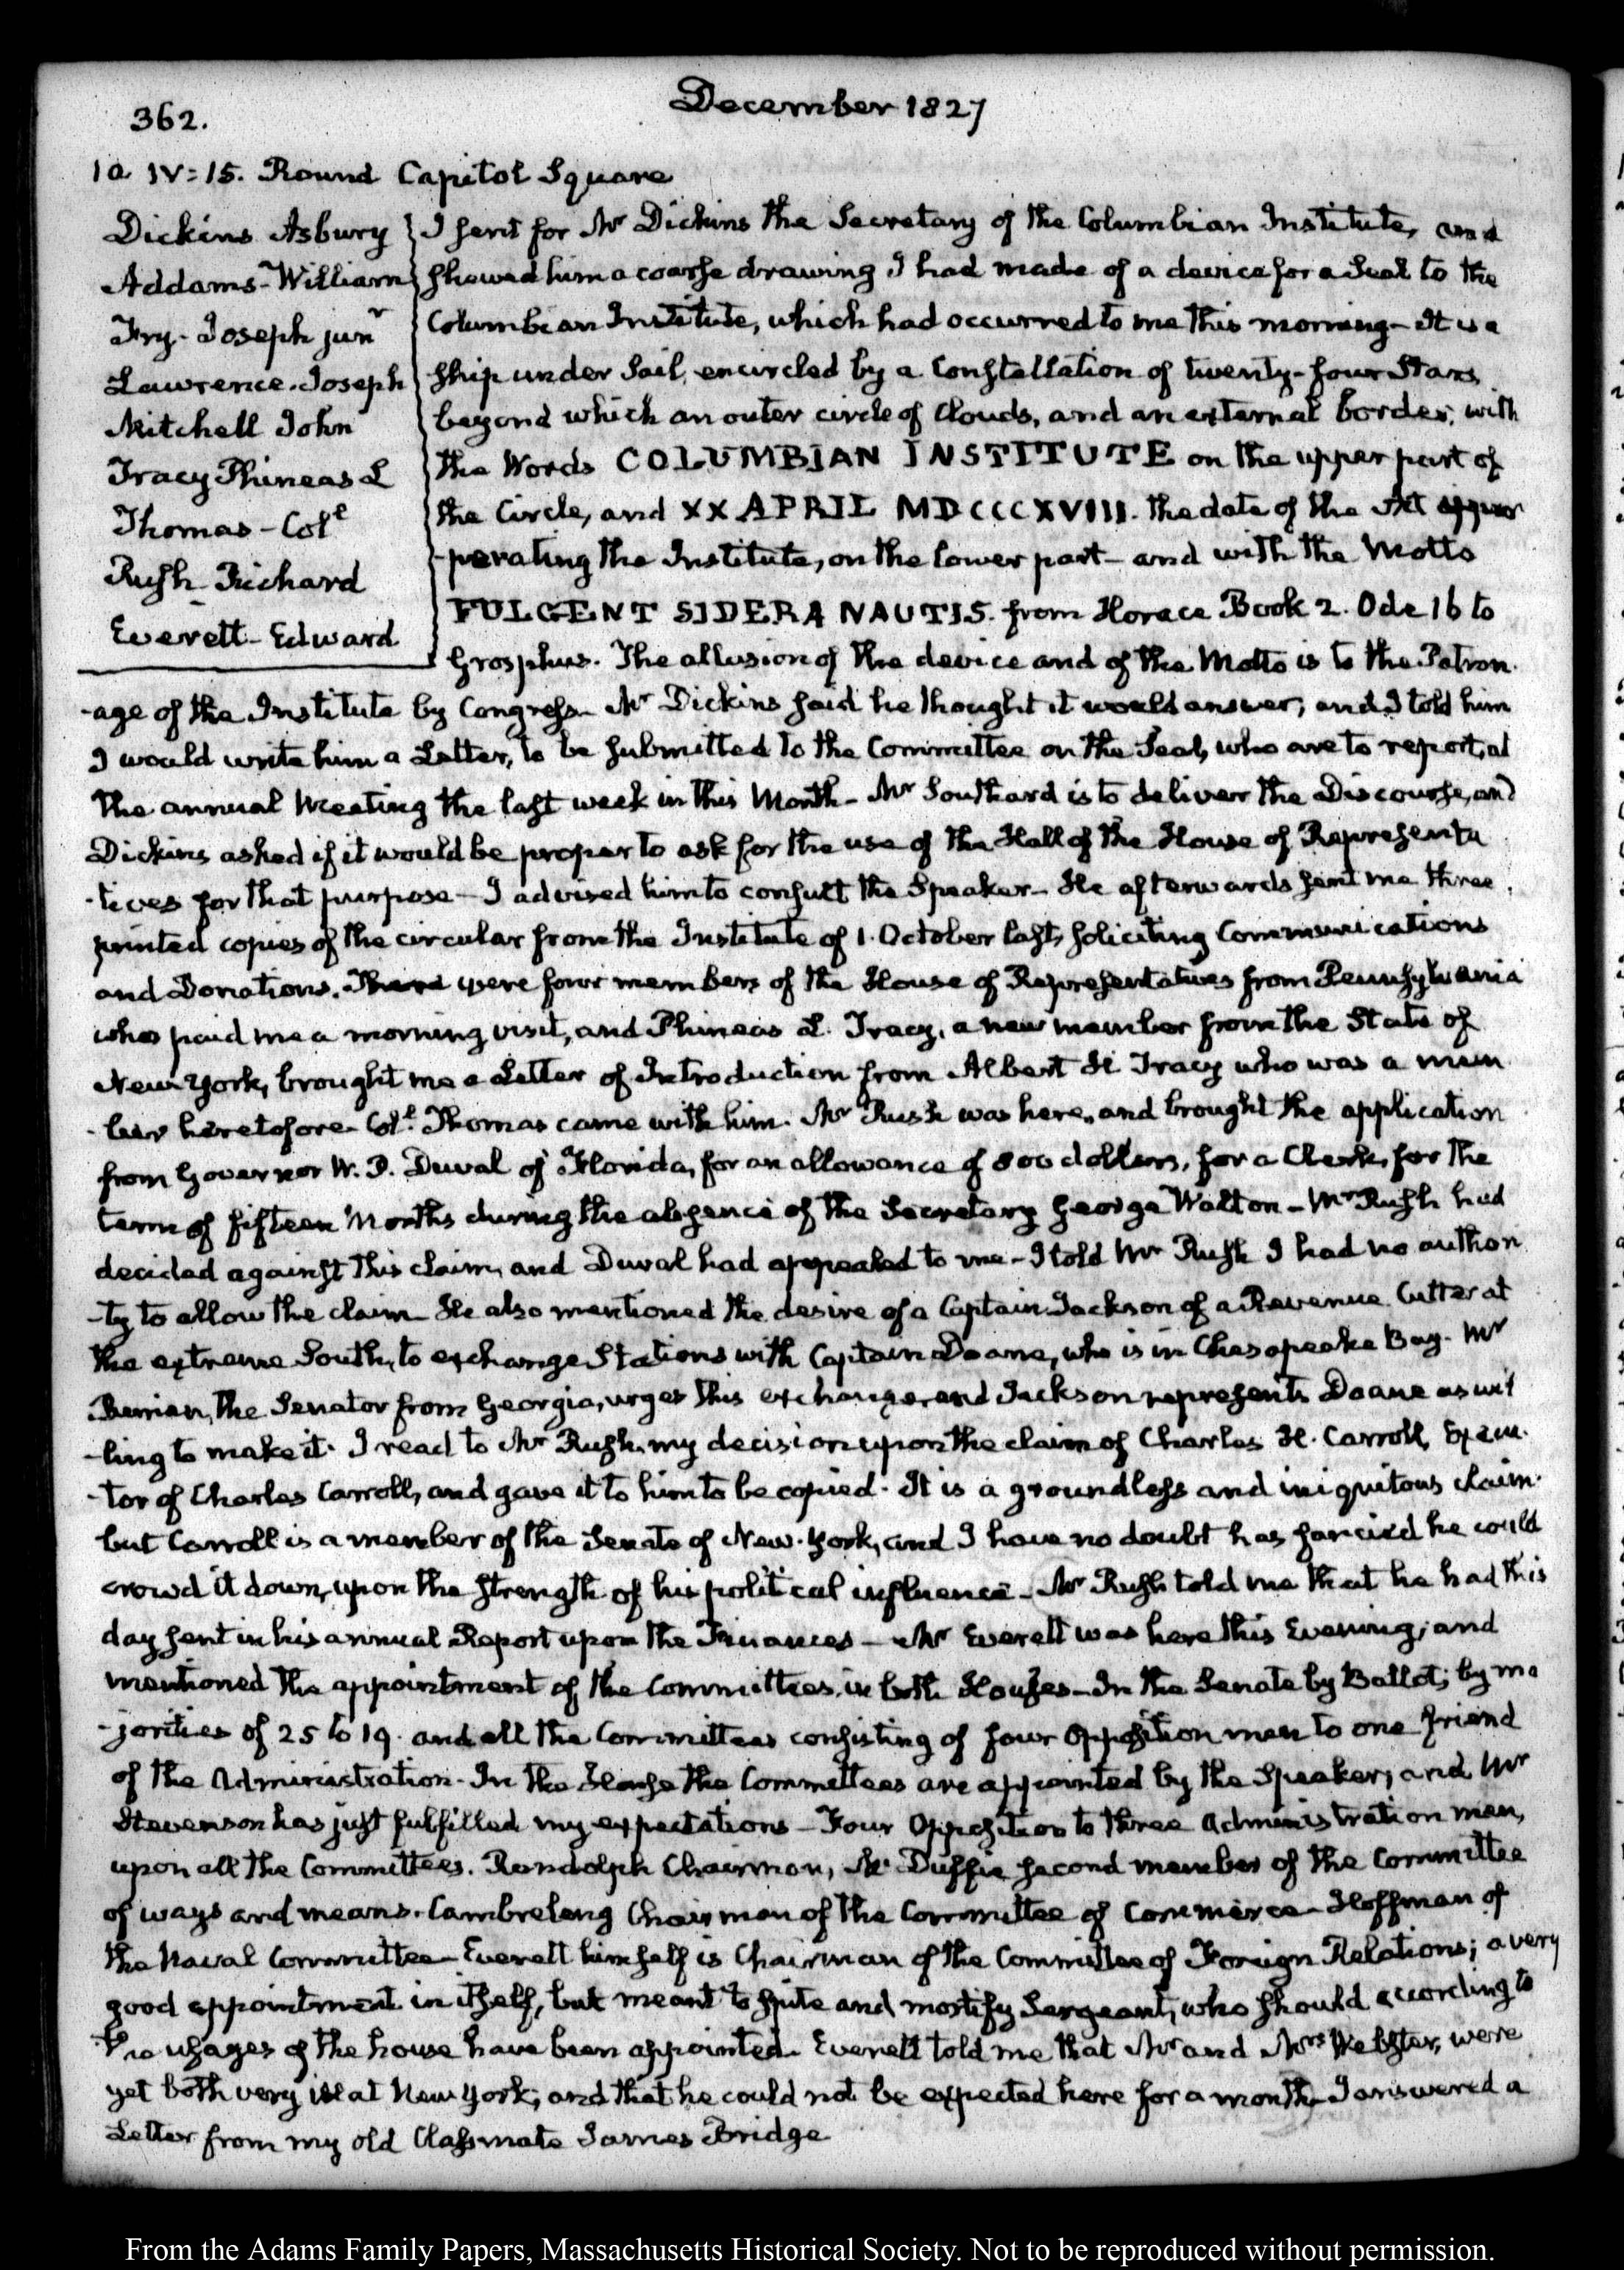 362.
December 1827
10 IV:15. Round Capitol Square
Dickins Asbury
Addams-William
Fry-Joseph junr
Lawrence-Joseph
Mitchell John
Tracy Phineas L
Thomas-Colᵉ
Rush Richard
Everett-Edward
I sent for Mr Dickins the Secretary of the Columbian Institute, and
shewed him a coarse drawing I had made of a device for a Seal to the
Columbian Institute, which had occurred to me this morning- It is a
ship under Sail, encircled by a Constellation of twenty-four Stars
beyond which an outer circle of Clouds, and an external border; with
the Words COLUMBIAN INSTITUTE on the upper part of
the Circle, and XX APRIL MDCCCXVIII. the date of the Act
-porating the Institute, on the lower part- and with the Motto
FULGENT SIDERA NAUTIS. from Horace Book 2. Ode 16 to
Grosphus. The allusion of the device and of the Motto is to the Patron
-age of the Institute by Congress- Mr Dickins said he thought it would answer, and I told him
I would write him a Letter, to be submitted to the Committee on the Seal, who are to report, at
the annual Meeting the last week in this Month- Mr Southard is to deliver the Discourse, and
Dickins asked if it would be proper to ask for the use of the Hall of the House of Representa
-tives for that purpose- I advised him to consult the Speaker- He afterwards sent me three
printed copies of the circular from the Institute of 1. October last, soliciting Communications
and Donations. There were four members of the House of Representatives from Pennsylvania
who paid me a morning visit, and Phineas L. Tracy, a new member from the State of
New York, brought me a Letter of Introduction from Albert H Tracy who was a mem
-ber heretofore- Colᵉ Thomas came with him. Mr Rush was here, and brought the application
from Governor W. P. Duval of Florida, for an allowance of 800 dollars, for a Clerk, for the
term of fifteen Months during the absence of the Secretary George Walton- Mr Rush had
decided against this claim, and Duval had appealed to me- I told Mr Rush I had no authori
-ty to allow the claim- He also mentioned the desire of a Captain Jackson of a Revenue Cutter at
the extreme South, to exchange Stations with Captain Doane, who is in Chesapeake Bay. Mr
Berrien, the Senator from Georgia, urges this exchange, and Jackson represents Doane as wil
-ling to make it. I read to Mr Rush, my decision upon the claim of Charles H. Carroll, Execu-
-tor of Charles Carroll, and gave it to him to be copied. It is a groundless and iniquitous claim.
but Carroll is a member of the Senate of New-York, and I have no doubt has fancied he could
crowd it down, upon the strength of his political influence- Mr Rush told me that he had this
day sent in his annual Report upon the Finances- Mr Everett was here this Evening; and
mentioned the appointment of the Committees, in both Houses- In the Senate by Ballot; by ma
-jorities of 25 to 19. and all the Committees consisting of four Opposition men to one friend
of the Administration- In the House the Committees are appointed by the Speaker; and Mr
Stevenson has just fulfilled my expectations- Four Opposition to three Administration men,
upon all the Committees. Randolph Chairman, Mc Duffie second member of the Committee
of ways and means. Cambreleng Chairman of the Committee of Commerce- Hoffman of
the Naval Committee- Everett himself is Chairman of the Committee of Foreign Relations; a very
good appointment in itself, but meant to spite and mortify Sergeant, who should according to
the usages of the house have been appointed. Everett told me that Mr and Mrs Webster, were
yet both very ill at New York; and that he could not be expected here for a month- I answered a
Letter from my old Classmate James Bridge
From the Adams Family Papers, Massachusetts Historical Society. Not to be reproduced without permission.